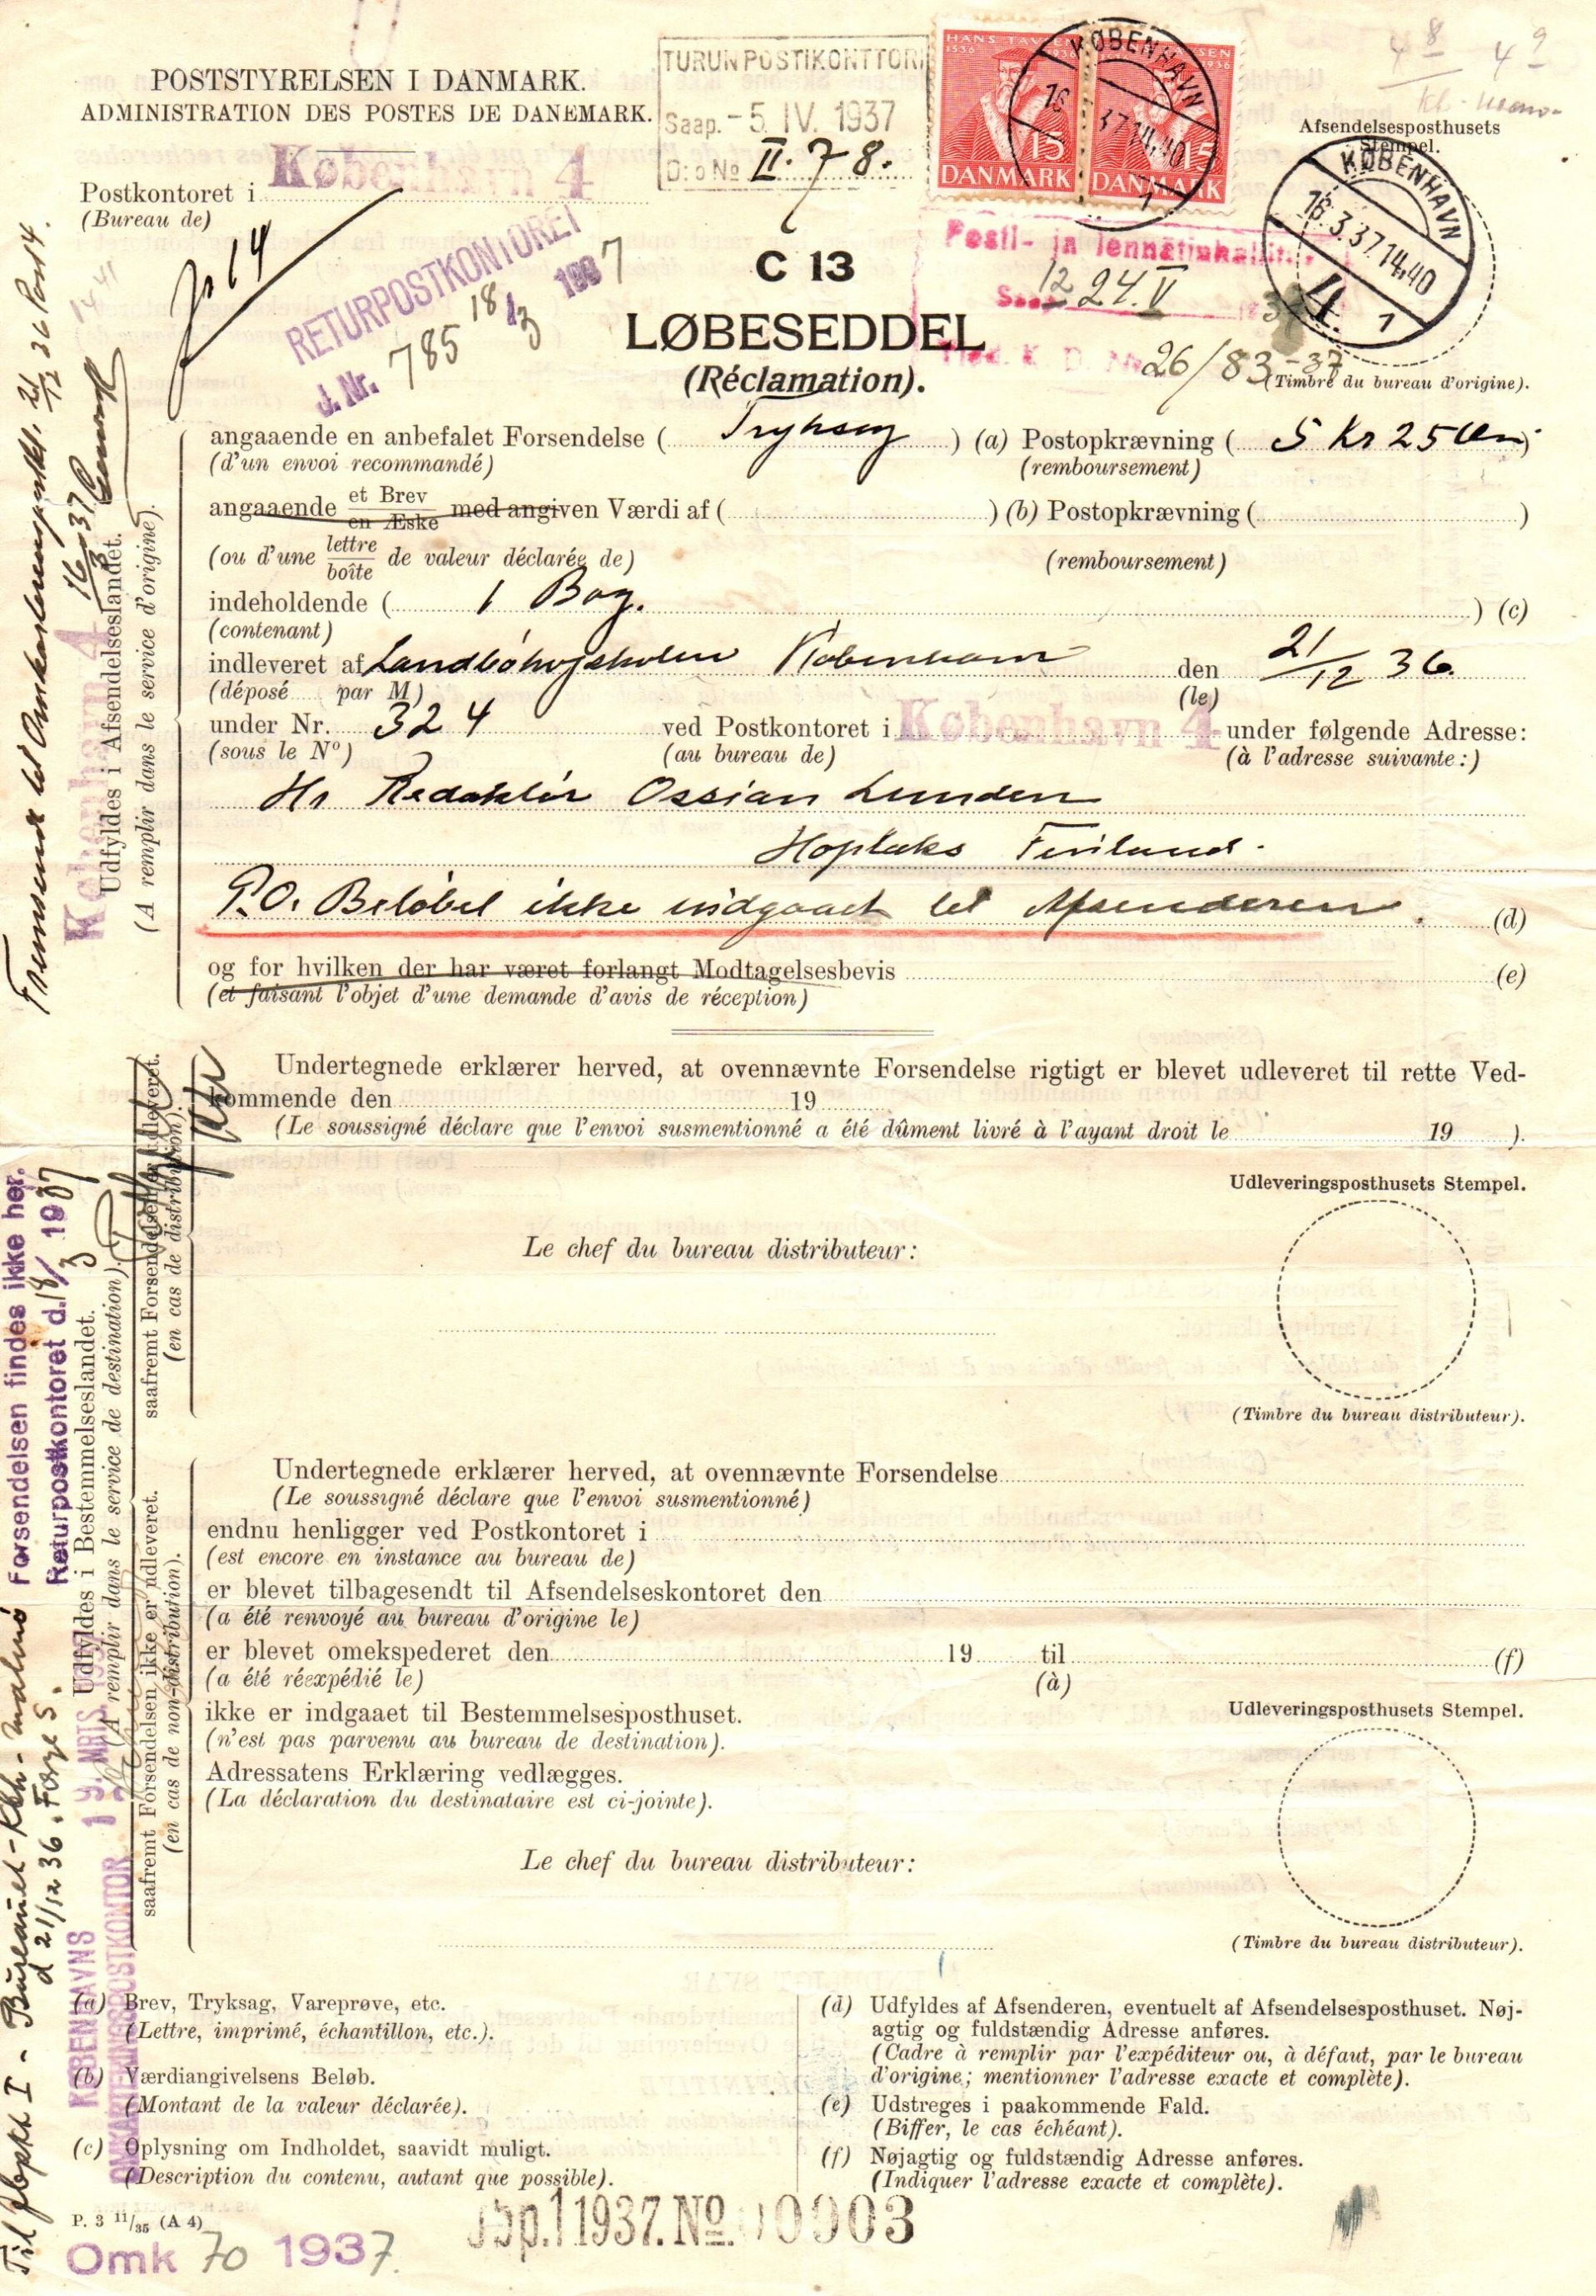 POSTSTYRELSEN I DANMARK.
ADMINISTRATION DES POSTES DE DANEMARK.
Postkontoret i København 4
(Bureau de)
TURUN POSTIKONTTORI
Saap. - 5. IV. 1937
D:o No II. 78.
HANS TAVSEN
1536 1936
15
DANMARK
DANMARK
15
KØBENHAVN
KØBENHAVN
16.3.37.14.40
4
1
Afsendelsesposthusets
Stempel.
(Timbre du bureau d'origine).
RETURPOSTKONTORET
J. Nr. 785 18/3 1937
Posti- ja
12 24.V
26/83-37
C 13
LØBESEDDEL
(Réclamation).
angaaende en anbefalet Forsendelse ( Tryksag ) (a) Postopkrævning ( 5 Kr 25 Øre )
(d'un envoi recommandé) (remboursement)
angaaende et Brev / en Æske med angiven Værdi af ( ) (b) Postopkrævning ( )
(ou d'une lettre / boîte de valeur déclarée de) (remboursement)
indeholdende ( 1 Bog. ) (c)
(contenant)
indleveret af Landbohøjskolen København den 21/12 36.
(déposé par M) (le)
under Nr. 324 ved Postkontoret i København 4 under følgende Adresse:
(sous le No) (au bureau de) (à l'adresse suivante:)
Hr Redaktør Ossian Lunden
Hoplaks Finland.
P.O. Beløbet ikke indgaaet til Afsenderen. (d)
og for hvilken der har været forlangt Modtagelsesbevis (e)
(et faisant l'objet d'une demande d'avis de réception)
Udfyldes i Afsendelseslandet.
(A remplir dans le service d'origine).
København 4
16/3 37
Undertegnede erklærer herved, at ovennævnte Forsendelse rigtigt er blevet udleveret til rette Ved-
kommende den 19
(Le soussigné déclare que l'envoi susmentionné a été dûment livré à l'ayant droit le 19 ).
Udleveringsposthusets Stempel.
Le chef du bureau distributeur:
(Timbre du bureau distributeur).
saafremt Forsendelsen er udleveret.
(en cas de distribution).
Forsendelsen findes ikke her.
Returpostkontoret d. 18/3 1937
Udfyldes i Bestemmelseslandet.
(A remplir dans le service de destination).
Undertegnede erklærer herved, at ovennævnte Forsendelse
(Le soussigné déclare que l'envoi susmentionné)
endnu henligger ved Postkontoret i
(est encore en instance au bureau de)
er blevet tilbagesendt til Afsendelseskontoret den
(a été renvoyé au bureau d'origine le)
er blevet omekspederet den 19 til (f)
(a été réexpédié le) (à)
ikke er indgaaet til Bestemmelsesposthuset.
(n'est pas parvenu au bureau de destination).
Adressatens Erklæring vedlægges.
(La déclaration du destinataire est ci-jointe).
Udleveringsposthusets Stempel.
Le chef du bureau distributeur:
(Timbre du bureau distributeur).
saafremt Forsendelsen ikke er udleveret.
(en cas de non-distribution).
KØBENHAVNS
OMKARTERINGSPOSTKONTOR
19. MRTS. 1937
Bureauet - Kbh - Malmö
d 21/12 36.
(a) Brev, Tryksag, Vareprøve, etc.
(Lettre, imprimé, échantillon, etc.).
(b) Værdiangivelsens Beløb.
(Montant de la valeur déclarée).
(c) Oplysning om Indholdet, saavidt muligt.
(Description du contenu, autant que possible).
(d) Udfyldes af Afsenderen, eventuelt af Afsendelsesposthuset. Nøj-
agtig og fuldstændig Adresse anføres.
(Cadre à remplir par l'expéditeur ou, à défaut, par le bureau
d'origine; mentionner l'adresse exacte et complète).
(e) Udstreges i paakommende Fald.
(Biffer, le cas échéant).
(f) Nøjagtig og fuldstændig Adresse anføres.
(Indiquer l'adresse exacte et complète).
P. 3 11/35 (A 4)
Omk 70 1937.
Jbp.1 1937. No. 00903